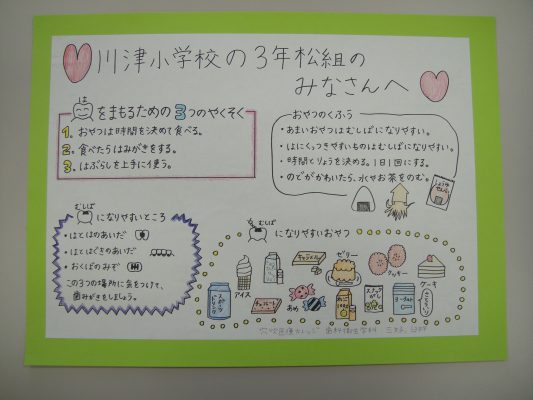 川津小学校の3年松組の
みなさんへ
は
をまもるための3つのやくそく
1. おやつは時間を決めて食べる。
2. 食べたらはみがきをする。
3. はぶらしを上手に使う。
おやつのくふう
・あまいおやつはむしばになりやすい。
・はにくっつきやすいものはむしばになりやすい。
・時間とりょうを決める。1日1回にする。
・のどがかわいたら、水やお茶をのむ。
むしば
になりやすいところ
・はとはのあいだ
・はとはぐきのあいだ
・おくばのみぞ
この3つの場所に気をつけて、
歯みがきをしましょう。
むしば
になりやすいおやつ
キャラメル
ゼリー
クッキー
ケーキ
アイス
スポーツドリンク
チョコレート
あめ
スナックがし
ヨーグルト
穴吹医療カレッジ 歯科衛生学科